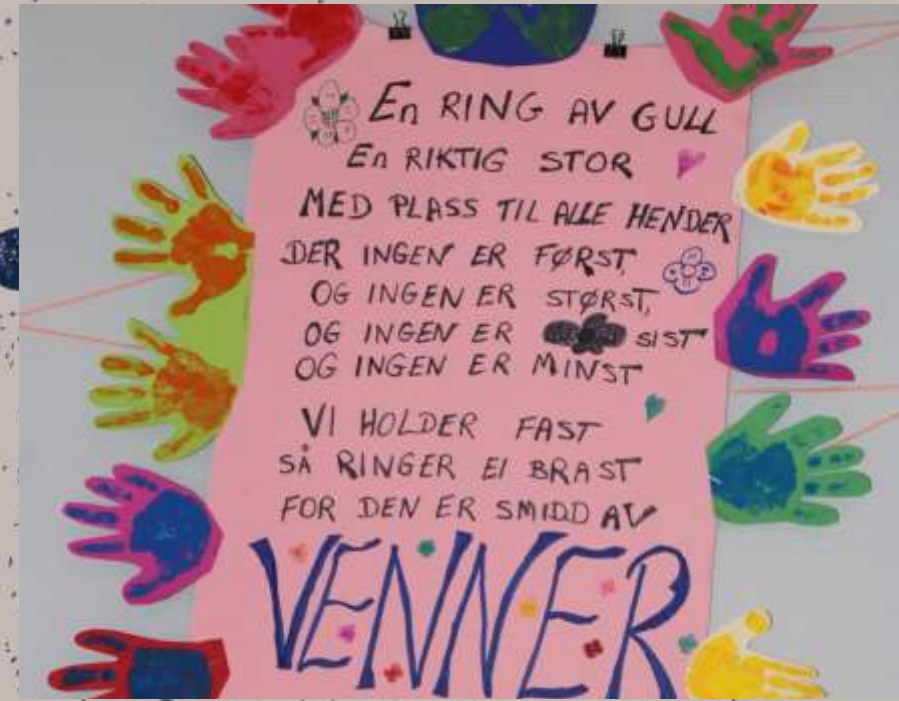 En RING AV GULL
En RIKTIG STOR
MED PLASS TIL ALLE HENDER
DER INGEN ER FØRST,
OG INGEN ER STØRST,
OG INGEN ER SIST
OG INGEN ER MINST
VI HOLDER FAST
SÅ RINGER EI BRAST
FOR DEN ER SMIDD AV
VENNER